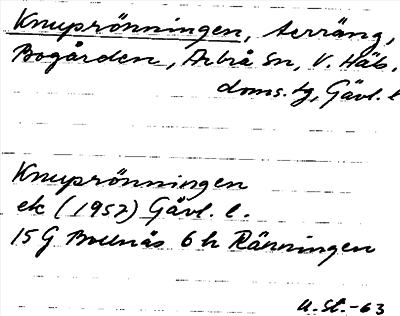 Knuprönningen, terräng,
Bogården, Arbrå sn, V. Häls.
doms. tg, Gävl. l
Knuprönningen
ek (1957) Gävl. l.
15 G Bollnäs 6 h Ränningen
U. St. -63